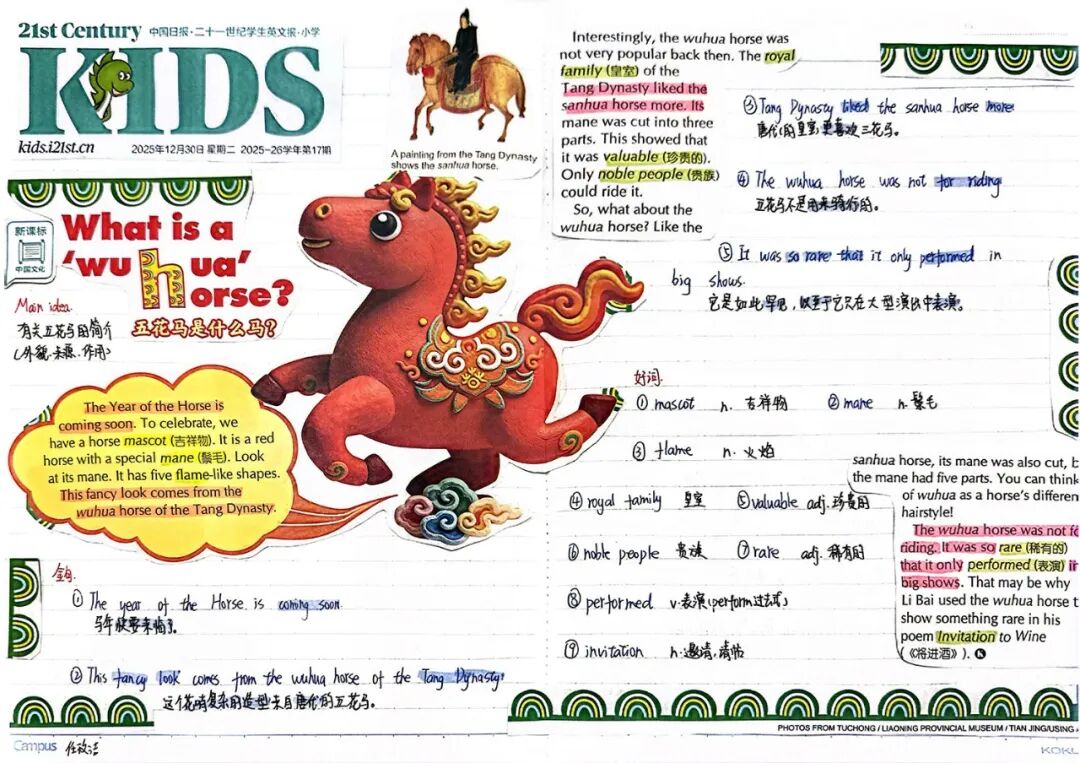 21st Century 中国日报·二十一世纪学生英文报·小学
KIDS
kids.i21st.cn 2025年12月30日 星期二 2025-26学年第17期
A painting from the Tang Dynasty
shows the sanhua horse.
新课标
中国文化
What is a
'wu hua'
horse?
五花马是什么马?
Main idea.
有关五花马的简介
(外貌.来源.作用)
The Year of the Horse is
coming soon. To celebrate, we
have a horse mascot (吉祥物). It is a red
horse with a special mane (鬃毛). Look
at its mane. It has five flame-like shapes.
This fancy look comes from the
wuhua horse of the Tang Dynasty.
金句.
① The year of the Horse is coming soon.
马年快要来临了。
② This fancy look comes from the wuhua horse of the Tang Dynasty.
这个花哨复杂的造型来自唐代的五花马。
Campus
Interestingly, the wuhua horse was
not very popular back then. The royal
family (皇室) of the
Tang Dynasty liked the
sanhua horse more. Its
mane was cut into three
parts. This showed that
it was valuable (珍贵的).
Only noble people (贵族)
could ride it.
So, what about the
wuhua horse? Like the
③ Tang Dynasty liked the sanhua horse more
唐代的皇室更喜欢三花马。
④ The wuhua horse was not for riding
五花马不是用来骑行的。
⑤ It was so rare that it only performed in
big shows.
它是如此罕见,以至于它只在大型演出中表演。
好词.
① mascot n. 吉祥物 ② mane n. 鬃毛
③ flame n. 火焰
④ royal family 皇室 ⑤ valuable adj. 珍贵的
⑥ noble people 贵族 ⑦ rare adj. 稀有的
⑧ performed v.表演(perform过去式)
⑨ invitation n.邀请.请帖
sanhua horse, its mane was also cut, b
the mane had five parts. You can think
of wuhua as a horse's differen
hairstyle!
The wuhua horse was not fo
riding. It was so rare (稀有的)
that it only performed (表演) in
big shows. That may be why
Li Bai used the wuhua horse t
show something rare in his
poem Invitation to Wine
(《将进酒》).
PHOTOS FROM TUCHONG / LIAONING PROVINCIAL MUSEUM / TIAN JING/USING A
KOKU